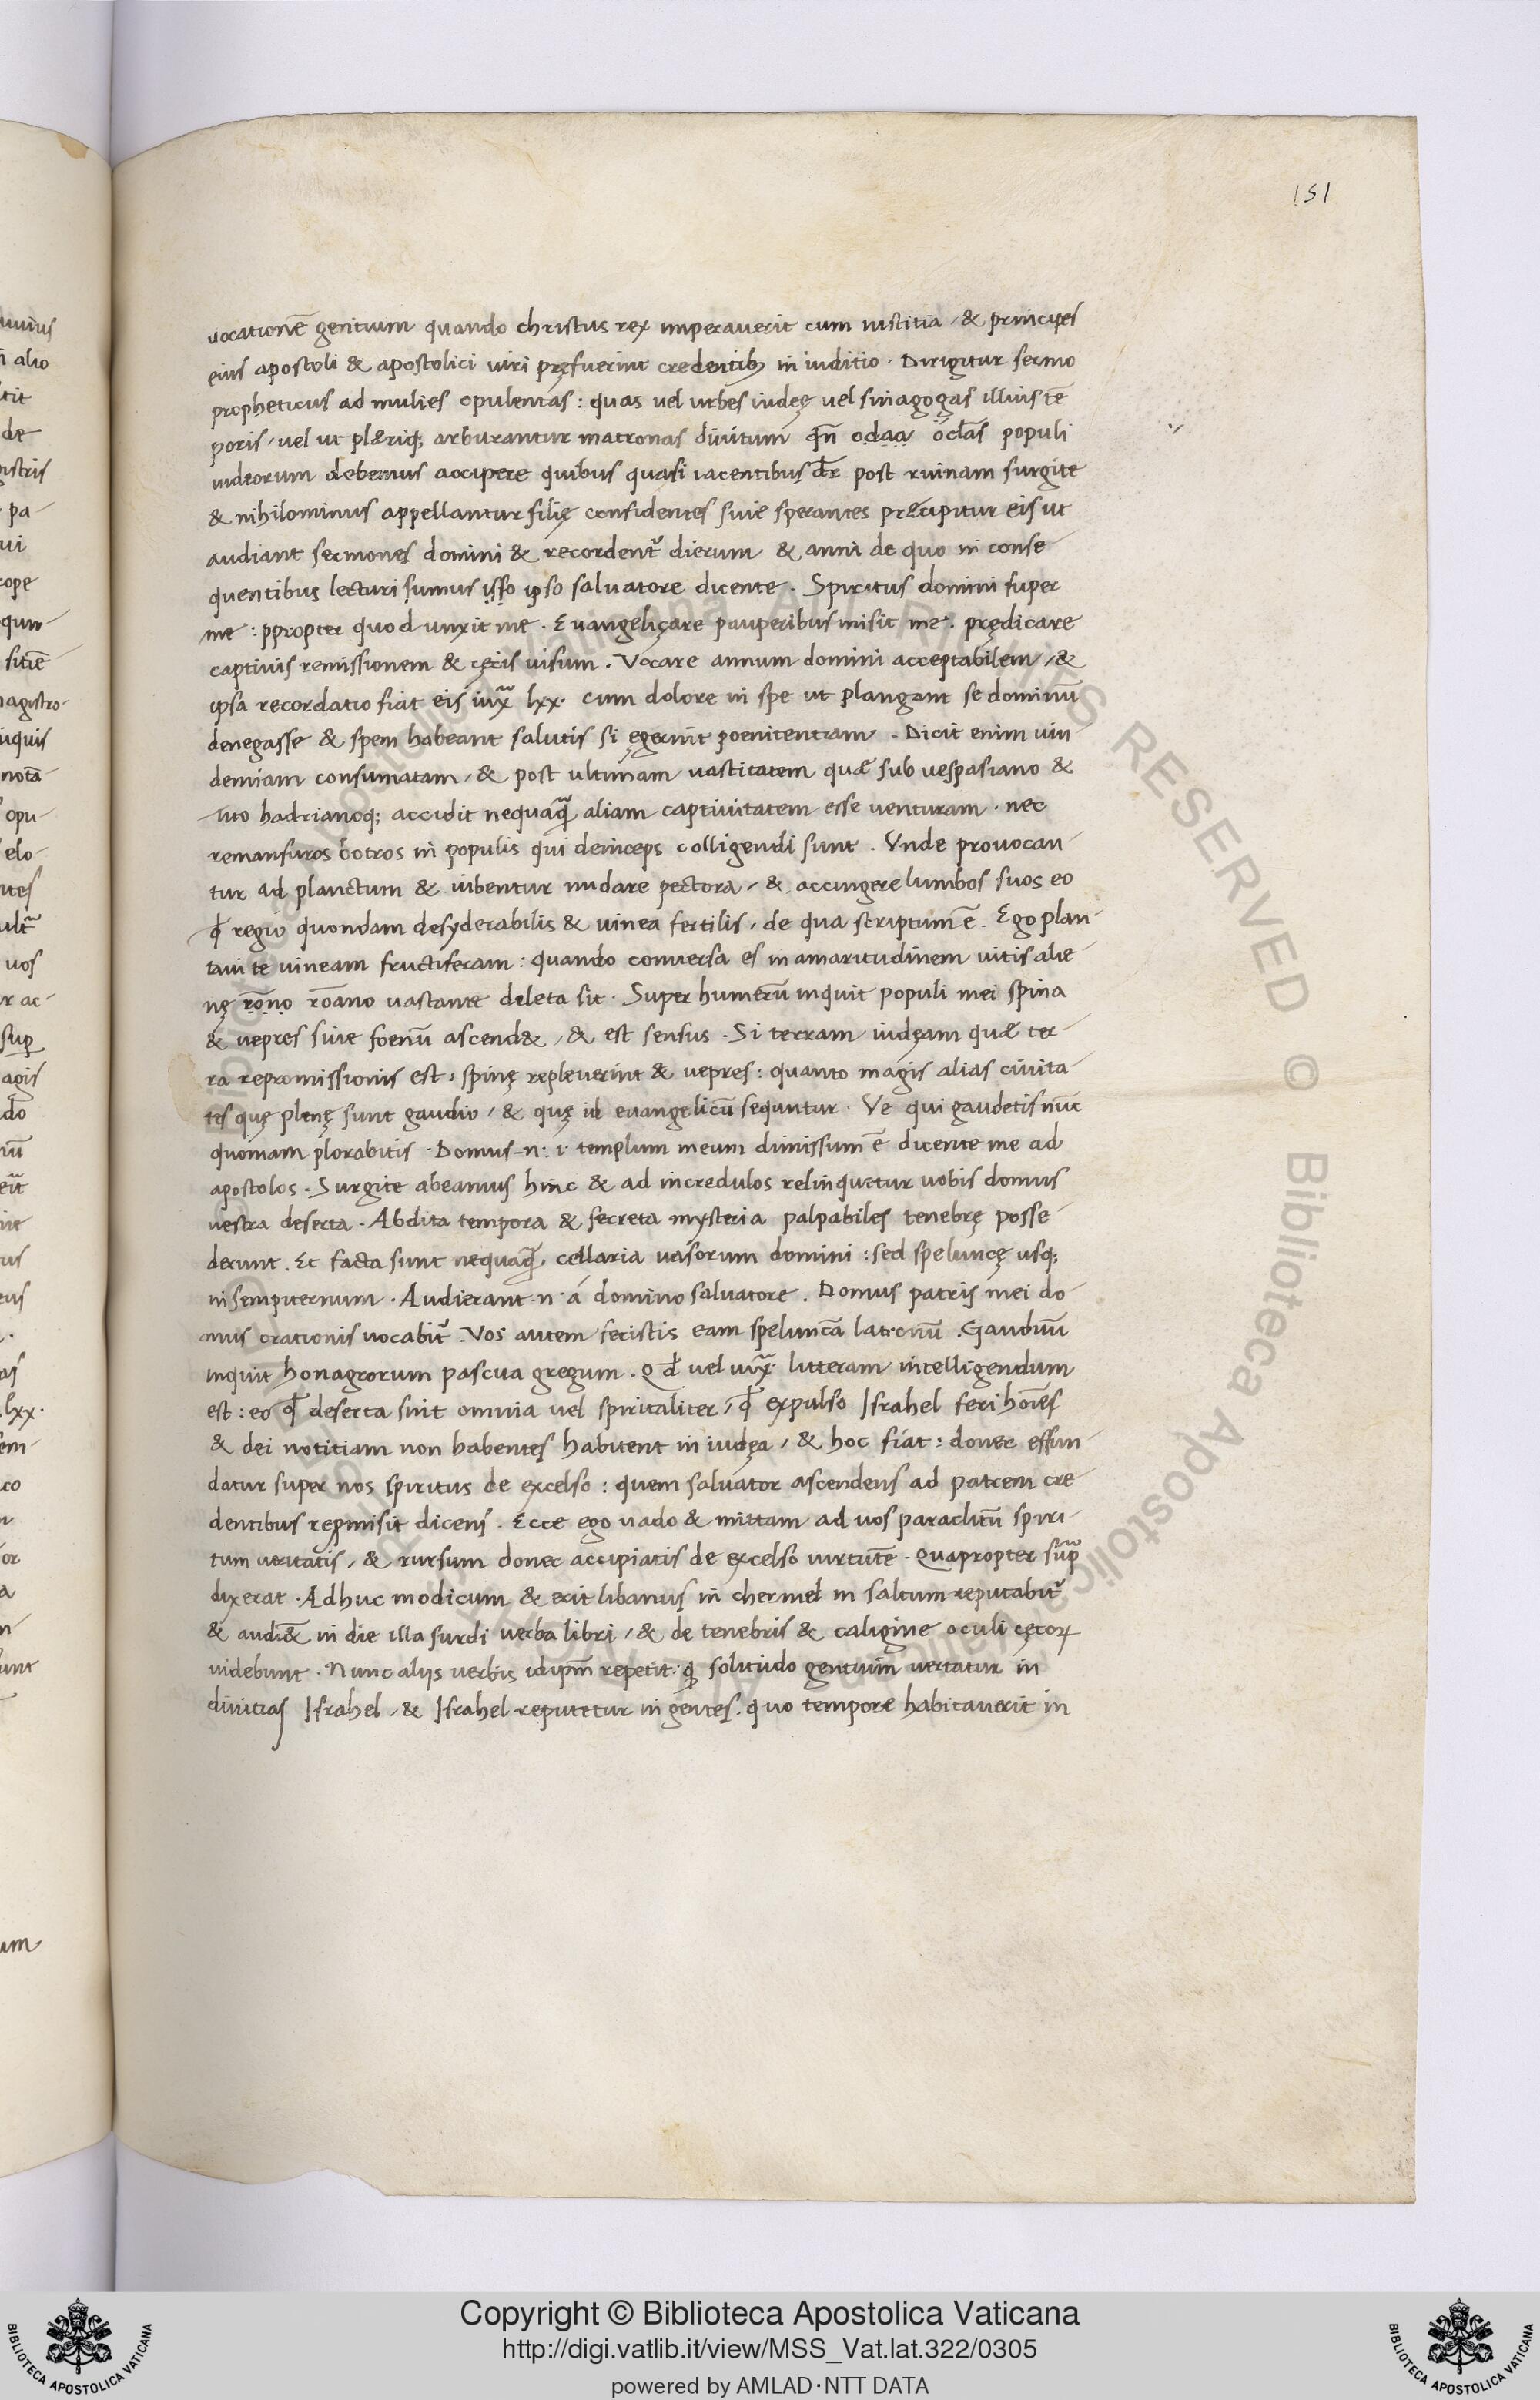 151
uocationē gentium quando christus rex imperauerit cum iustitia / & principes
eius apostoli & apostolici uiri pręfuerint credentibꝫ in iuditio . Dirigitur sermo
propheticus ad mulies opulentas : quas uel urbes iudeę uel sinagogas illius tē
poris / uel ut plæriqꝫ arburantur matronas diuitum populi
iudeorum debemus accipere quibus quasi iacentibus dr̄ post ruinam surgite
& nihilominus appellantur filię confidentes siue sperantes præcipitur eis ut
audiant sermones domini & recordent᷑ dierum & anni de quo in conse-
quentibus lecturi sumus isso ipso saluatore dicente . Spiritus domini super
me : ꝓpropter quod unxit me . Euangeliçare pauperibus misit me . prędicare
captiuis remissionem & cęcis uisum . Vocare annum domini acceptabilem / &
ipsa recordatio fiat eis iux̄ lxx. cum dolore in spe ut plangant se dominū
denegasse & spem habeant salutis si ęgerint poenitentiam . Dicit enim uin-
demiam consumatam / & post ultimam uastitatem quæ sub uespasiano &
tito hadrianoqꝫ accidit nequaꝗ̄ aliam captiuitatem esse uenturam . nec
remansuros botros in populis qui deinceps colligendi sunt . Vnde prouocan-
tur ad planctum & iubentur nudare pectora / & accingere lumbos suos eo
ꝙ regio quondam desyderabilis & uinea fertilis / de qua scriptum ē . Ego plan-
taui te uineam fructiferam : quando conuersa es in amaritudinem uitis alie-
nę rōno rōano uastante deleta sit . Super humerū inquit populi mei spina
& uepres siue foenū ascend& / & est sensus . Si terram iudęam quæ ter-
ra repromissionis est , spinę repleuerint & uepres : quanto magis alias ciuita-
tes quę plenę sunt gaudio / & quę id euangelicū sequntur . Ve qui gaudetis nūc
quoniam plorabitis . Domus .n. i. templum meum dimissum ē dicente me ad
apostolos . Surgite abeamus hinc & ad incredulos relinquetur uobis domus
uestra deserta . Abdita tempora & secreta mysteria palpabiles tenebrę posse-
derunt . Et facta sunt nequaꝗ̄ , cellaria uasorum domini : sed speluncę usqꝫ
in sempiternum . Audierant .n. á domino saluatore . Domus patris mei do-
mus orationis uocabit᷑ . Vos autem fecistis eam speluncā latronū . Gaudiū
inquit honagrorum pascua gregum . Qd̄ uel iux̄ litteram intelligendum
est : eo ꝙ deserta sint omnia uel spiritaliter / ꝙ expulso Israhel feri hoīes
& dei notitiam non habentes habitent in iudęa / & hoc fiat : donec effun-
datur super nos spiritus de excelso : quem saluator ascendens ad patrem cre-
dentibus repmisit dicens . Ecce ego uado & mittam ad uos paraclitū spiri-
tum ueritatis / & rursum donec accipiatis de excelso uirtutē . Quapropter sup̄
dixerat . Adhuc modicum & erit libanus in chermel in saltum reputabit᷑
& audi& in die illa surdi uerba libri / & de tenebris & caligine oculi cęcoꝝ
uidebunt . Nunc alijs uerbis idipm̄ repetit : ꝙ solitudo gentium uertatur in
diuitias Israhel / & Israhel reputetur in gentes . quo tempore habitauerit in
Copyright © Biblioteca Apostolica Vaticana
http://digi.vatlib.it/view/MSS_Vat.lat.322/0305
powered by AMLAD·NTT DATA